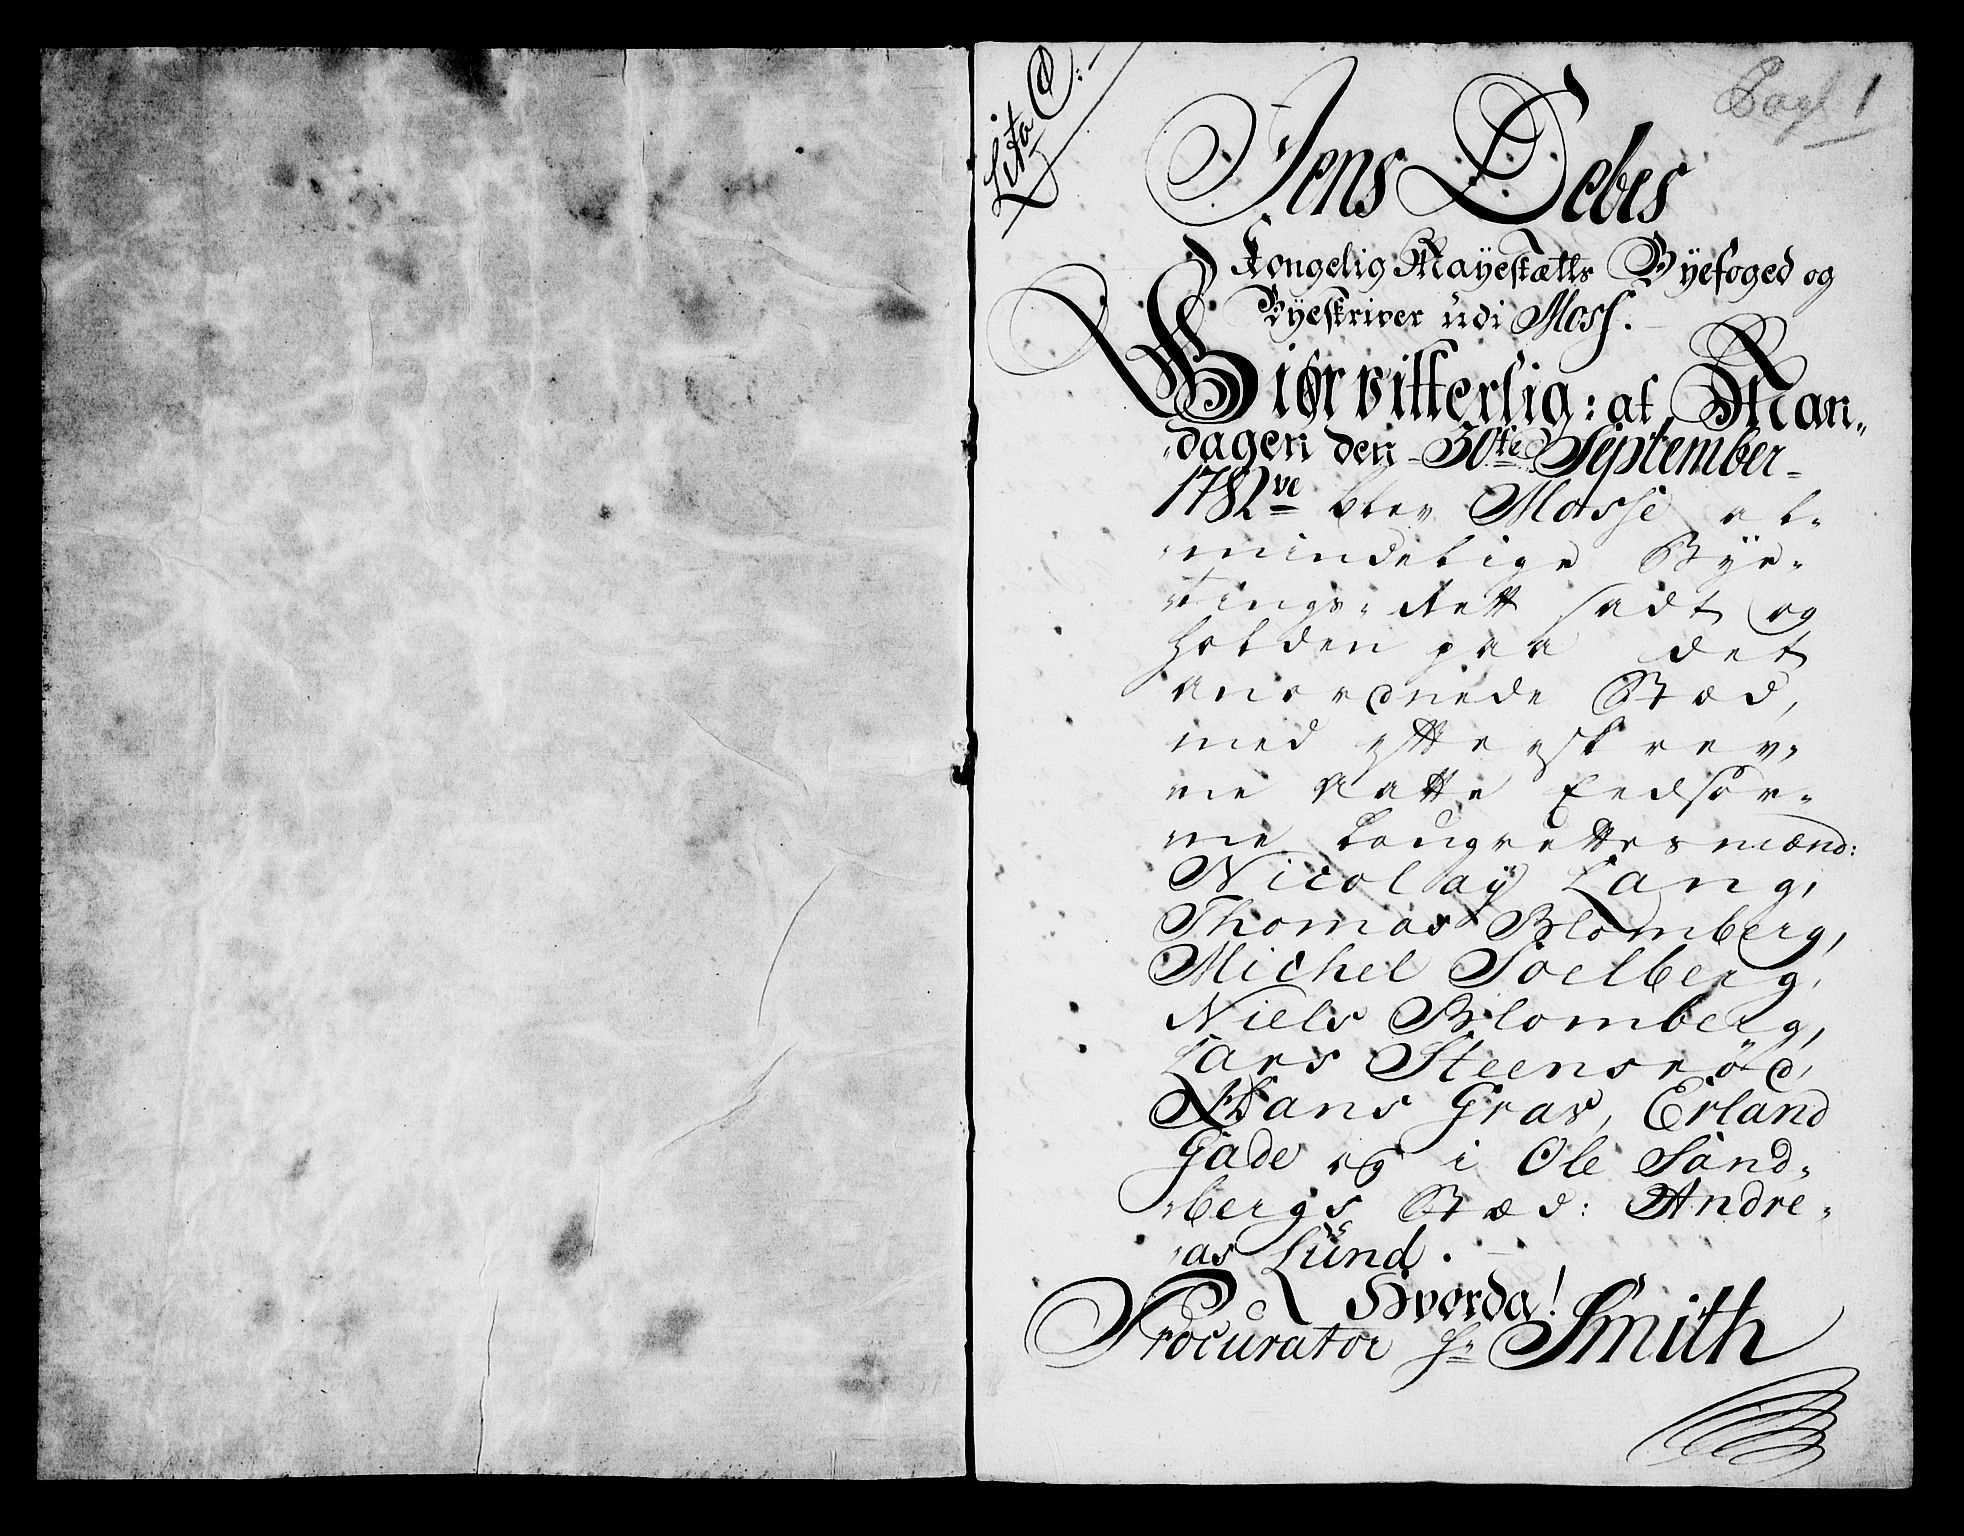 Lita C:
Bagl 1
Jens Debes
Kongelig Mayestætts Byefoged og
Byeskriver udi Moss.
Giør vitterlig: at Man„
„dagen den 30te September
1782ve blev Mosse al„
„mindelige Bÿe„
„tings„Rett sadt og
holden paa det
anordnede Stæd,
med efterskrev„
ne Aatte Eedsør„
ne Laugrettesmænd:
Nicolaÿ Lang,
Thomas Blomberg,
Michel Soelberg,
Niels Blomberg,
Lars Steensrød,
Hans Gras, Erland
Gade og i Ole Sand„
„bergs Stæd: Andre„
„as Lund.
Hvorda!
Procurator Hr Smith